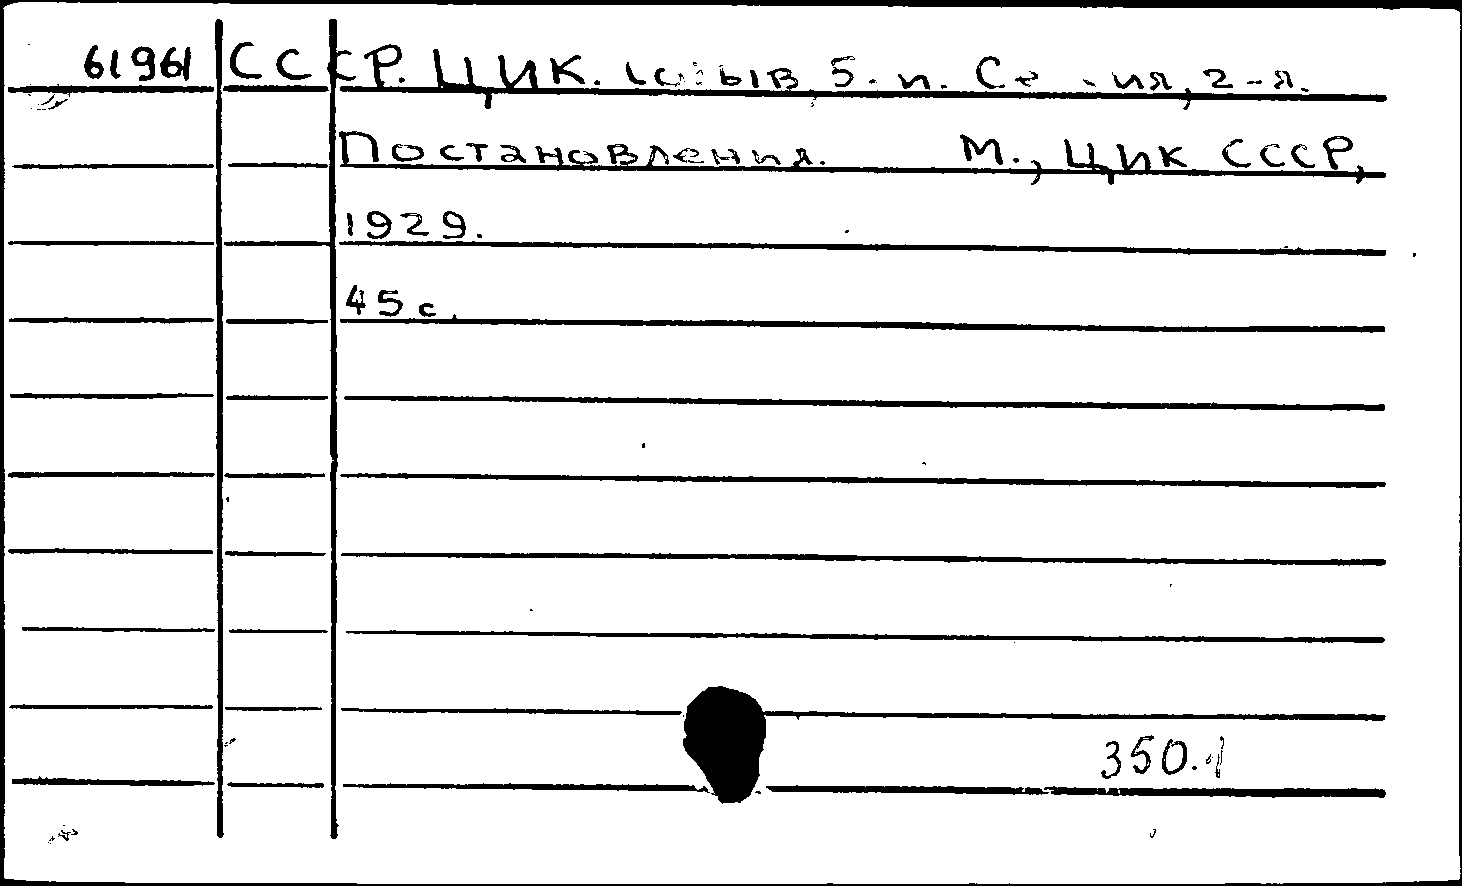 61961 СССР. ЦИК. Созыв, 5-й. Сессия, 2-я.
Постановления. М., ЦИК СССР,
1929.
45 с.
350.1